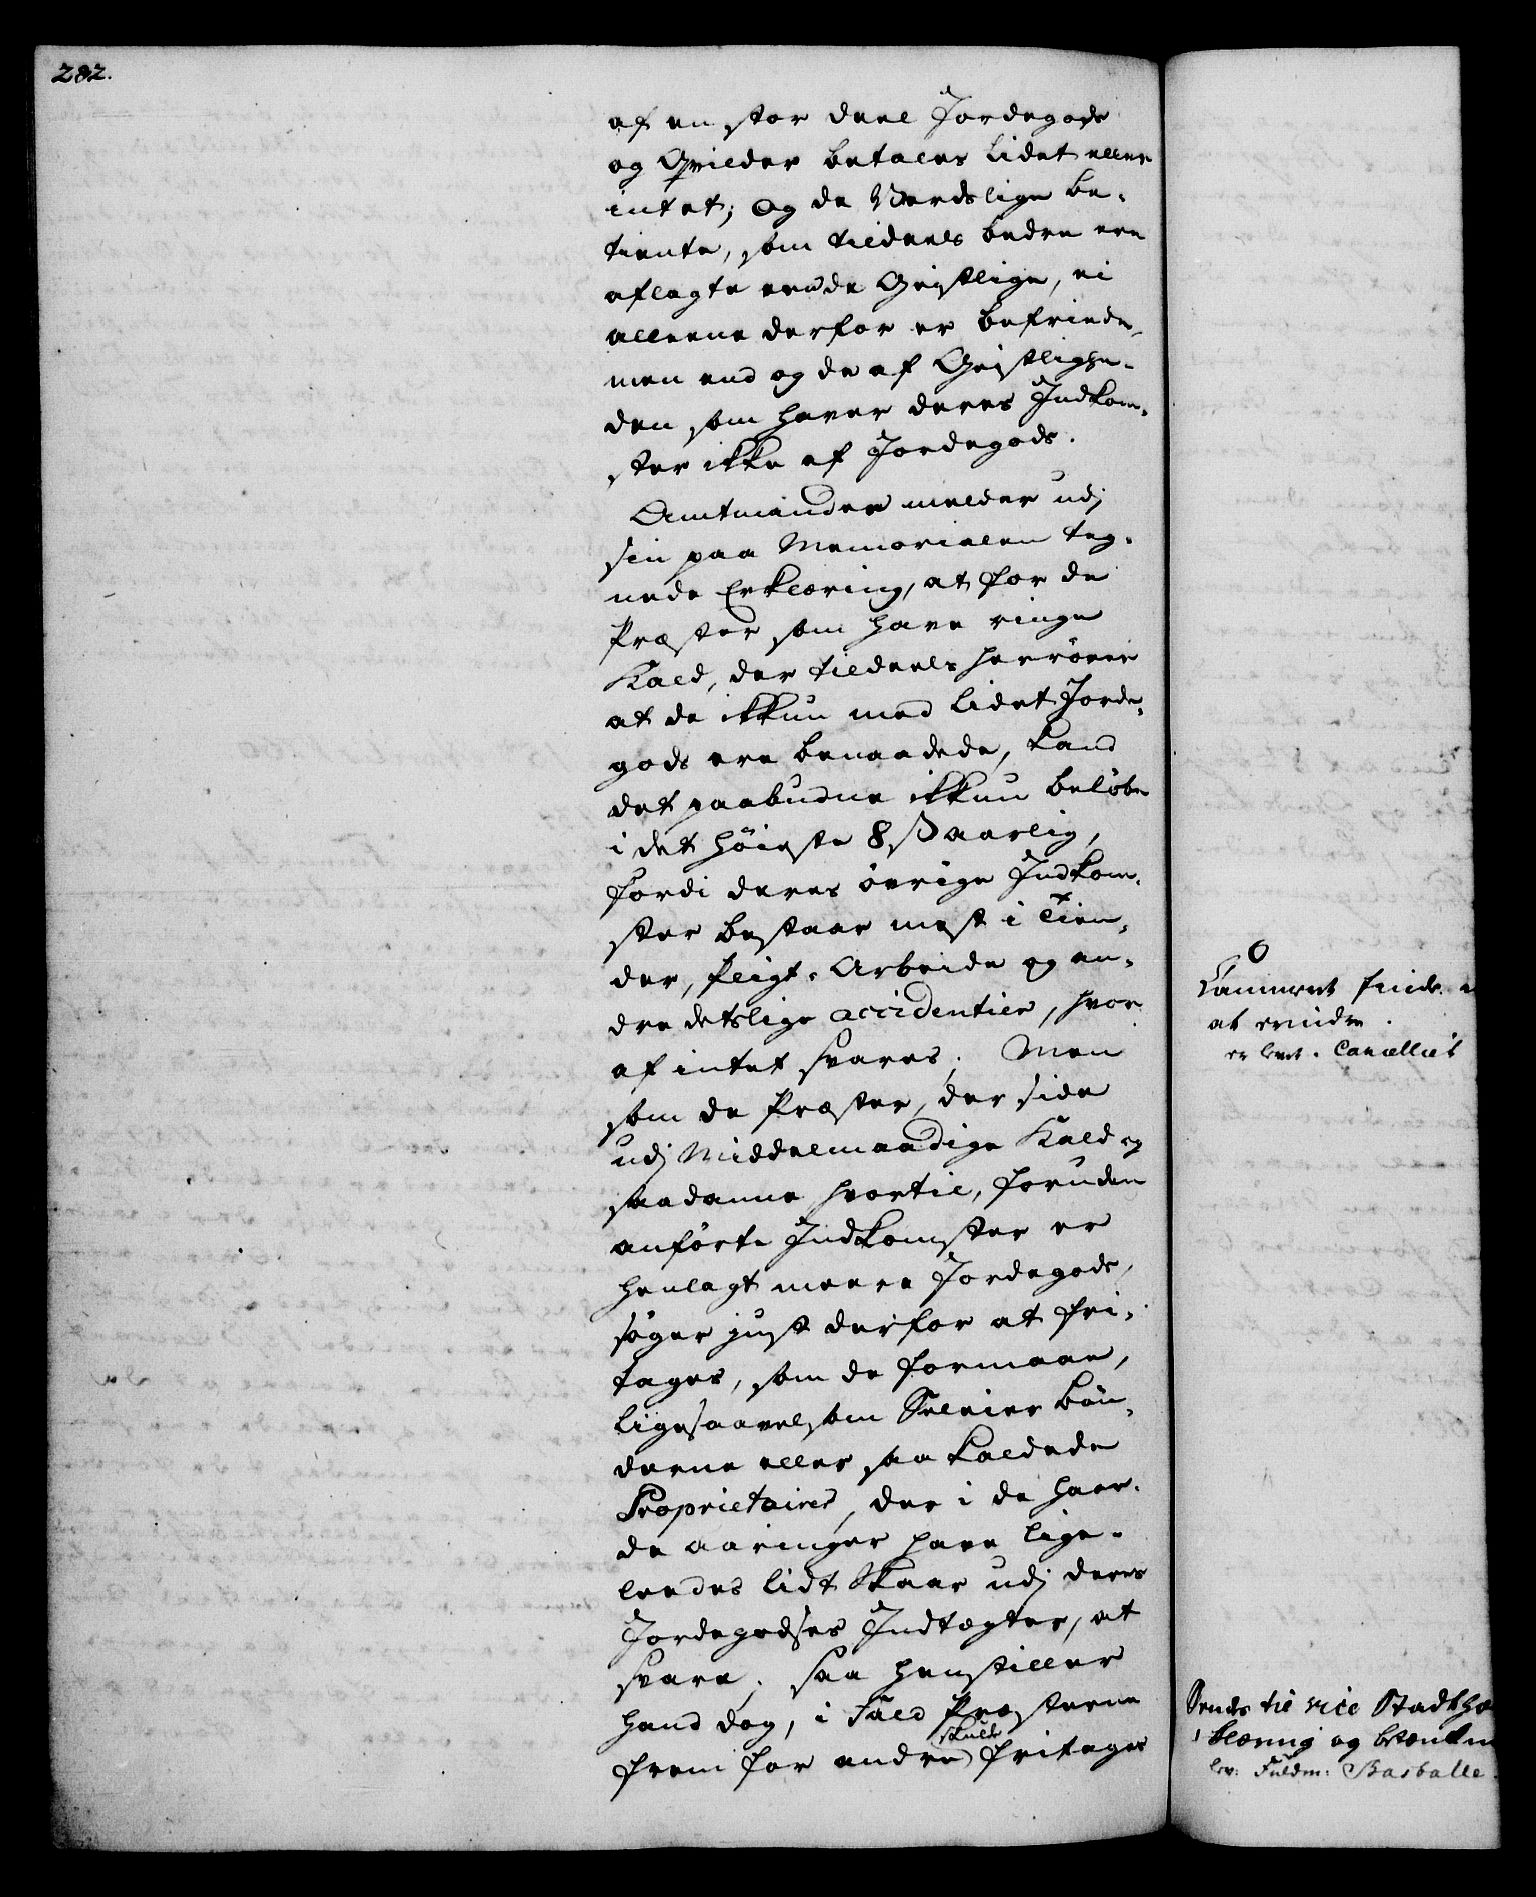 282.
af en stor deel Jordegods
og Qvilder betales lidet eller
intet; og de Verdslige be-
tiente, som tildeels bedre ere
aflagte end de Geistlige, ei
alleene derfor er befriede,
men end og de af Geistlighe-
den som haver deres Indkom-
ster ikke af Jordegods.
Amtmanden melder udj
sin paa Memorialen teg-
nede Erklæring, at for de
Præster som have ringe
Kald, der tildeels herrører
at de ikkun med lidet Jorde-
gods ere benaadede, kand
det paabudne ikkun beløbe
i det høieste 8 ß aarlig,
fordi deres øvrige Indkom-
ster bestaar mest i Tien-
der, Pligt-Arbeide og an-
dre detslige accidentier, hvor
af intet svares. Men
som de Præster, der side
udj Middelmaadige Kald og
saadanne hvortil, foruden
anførte Indkomster er
henlagt meere Jordegods,
søger just derfor at fri-
tages, som de formaae,
ligesaavel som Seleier Bøn-
derne eller saa kaldede
Proprietairer, der i de haar-
de Aaringer have lige-
leedes lidt Skaar udj deres
Jordegodses Indtægter, at
svare; saa henstiller
hand dog, i Fald Præsterne
frem for andre skulle fritages
Cammeret finder
at erindre.
er levt. Cancelliet
Sendes til vice Stadth
klæring og betænkn
lev: Fuldm: Basballe.